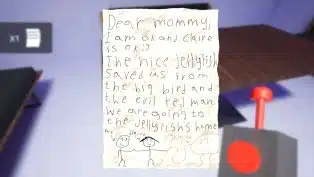 X1
Dear mommy,
I am ok and claire
is ok :)
The nice jellyfish
saved us from
the big bird and
the evil red man
we are going to
the jellyfishs home
me